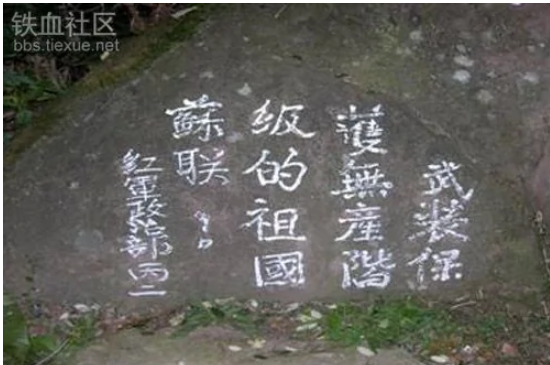 铁血社区
bbs.tiexue.net
武装保
護無産階
级的祖國
蘇联！
红軍政治部丙二